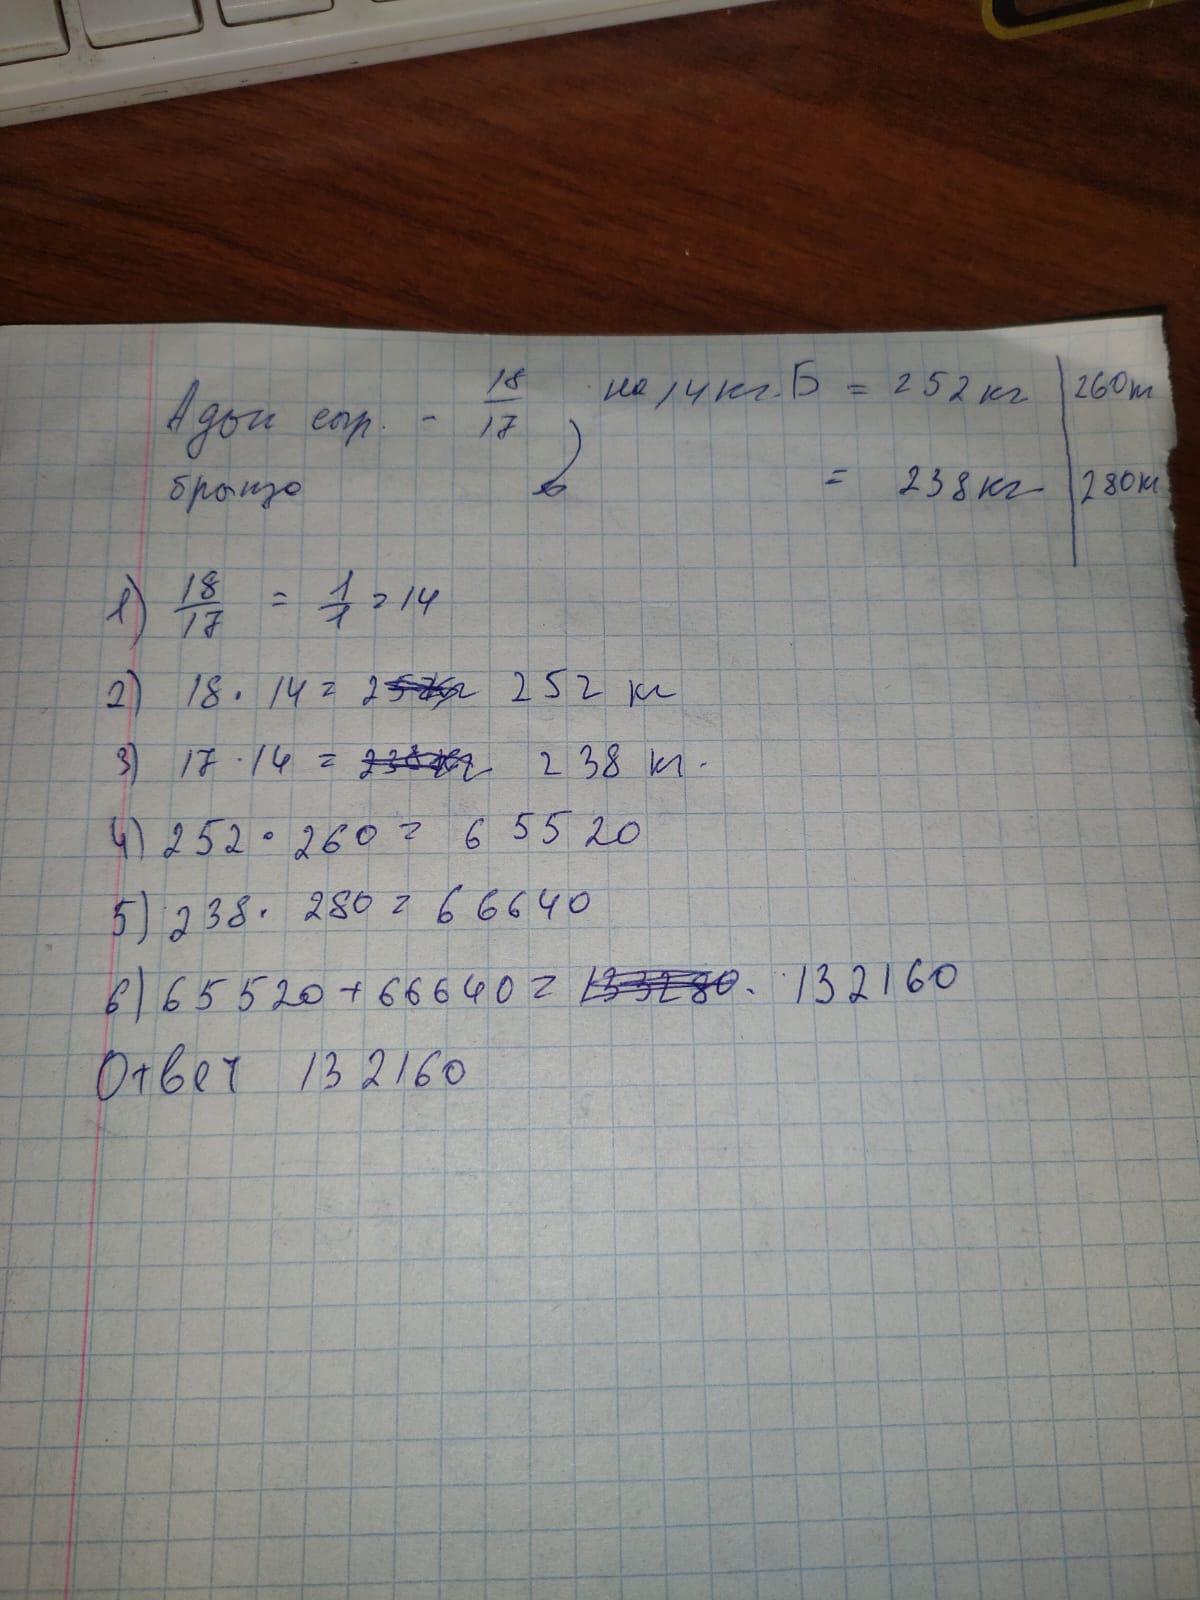 Адыг сыр. - 18/17 на 14 кг. Б = 252 кг | 260
брынза = 238 кг | 280
1) 18/17 = 1/1 = 14
2) 18 · 14 = 252 кг
3) 17 · 14 = 238 кг.
4) 252 · 260 = 65520
5) 238 · 280 = 66640
6) 65520 + 66640 = 132160
Ответ 132160